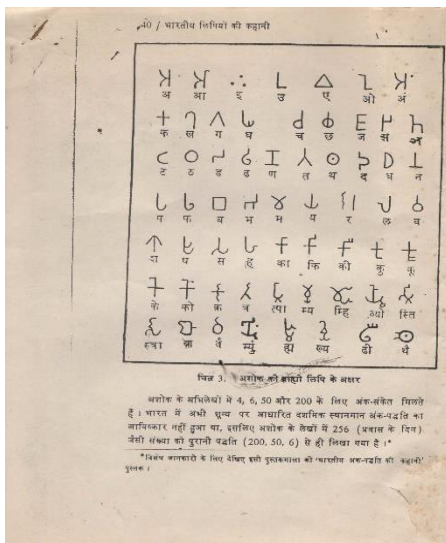 40 / भारतीय लिपियों की कहानी
अ आ इ उ ए ओ अं
क ख ग घ च छ ज झ ञ
ट ठ ड ढ ण त थ द ध न
प फ ब भ म य र ल व
श ष स ह का कि की कु कू
के को क्र त्र त्पा म्य म्हि व्यो स्ति
चित्र 3. अशोक की ब्राह्मी लिपि के अक्षर
अशोक के अभिलेखों में 4, 6, 50 और 200 के लिए अंक-संकेत मिलते
हैं। भारत में अभी शून्य पर आधारित दशमिक स्थानमान अंक-पद्धति का
आविष्कार नहीं हुआ था, इसलिए अशोक के लेखों में 256 (प्रवास के दिन)
जैसी संख्या को पुरानी पद्धति (200, 50, 6) से ही लिखा गया है।*
*विशेष जानकारी के लिए देखिए इसी पुस्तकमाला की 'भारतीय अंक-पद्धति की कहानी'
पुस्तक।